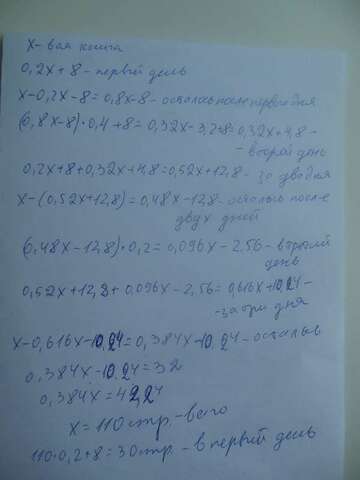 x - вая книга
0,2x + 8 - первый день
x - 0,2x - 8 = 0,8x - 8 - осталось после первого дня
(0,8x - 8)·0,4 + 8 = 0,32x - 3,2+8 = 0,32x + 4,8 -
- второй день
0,2x + 8 + 0,32x + 4,8 = 0,52x + 12,8 - за два дня
x - (0,52x + 12,8) = 0,48x - 12,8 - осталось после
двух дней
(0,48x - 12,8)·0,2 = 0,096x - 2,56 -
день
0,52x + 12,8 + 0,096x - 2,56 = 0,616x + 10,24 -
- за три дня
x - 0,616x - 10,24 = 0,384x - 10,24 - осталось
0,384x - 10,24 = 32
0,384x = 42,24
x = 110 стр. - всего
110·0,2 + 8 = 30 стр. - в первый день